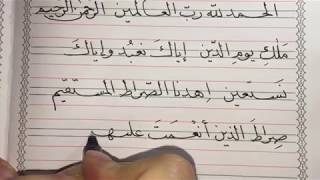 الحمد لله رب العالمين الرحمن الرحيم
مَلِكِ يومِ الدِّين إِيَّاكَ نَعْبُدُ وإِيَّاكَ
نَسْتَعين اِهْدِنَا الصِّرَاطَ المُسْتَقِيْم
صِرَاطَ الذين أَنْعَمْتَ عليهم